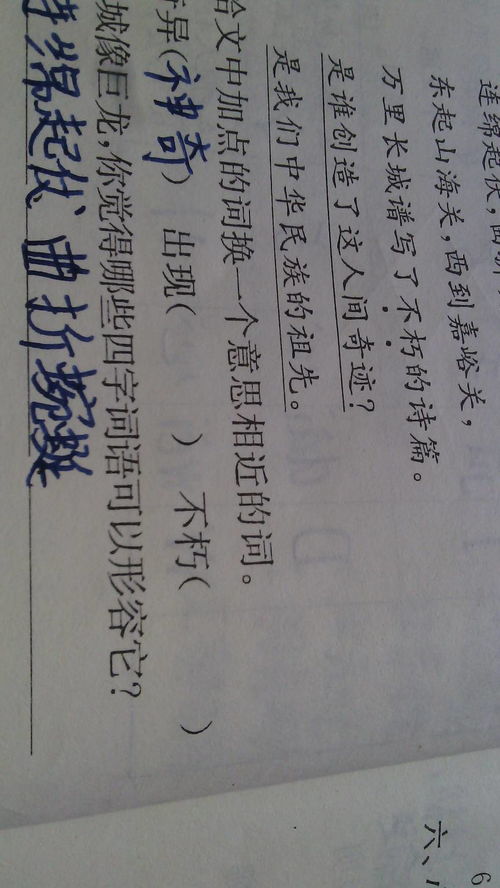 连绵起伏,
东起山海关,西到嘉峪关,
万里长城谱写了不朽的诗篇。
是谁创造了这人间奇迹?
是我们中华民族的祖先。
给文中加点的词换一个意思相近的词。
奇异(神奇) 出现( ) 不朽( )
城像巨龙,你觉得哪些四字词语可以形容它?
绵起伏 曲折蜿
六、
6